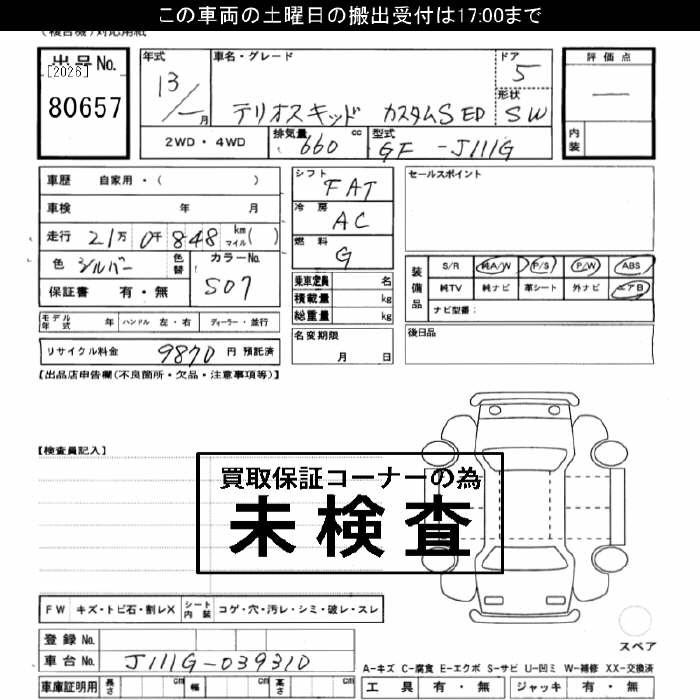 この車両の土曜日の搬出受付は17:00まで
(複合機)対応用紙
出品No.
[2026]
80657
年式
13/一月
車名・グレード
テリオスキッド カスタムS ED
ドア
5
形状
SW
評価点
—
内装
2WD・4WD
排気量
660
cc
型式
GF-J111G
車歴 自家用・( )
車検 年 月
走行 21万 0千 848 km マイル( )
色 シルバー
色替
カラーNo.
S07
保証書 有・無
シフト
FAT
冷房
AC
燃料
G
乗車定員 名
積載量 kg
総重量 kg
セールスポイント
装備品
S/R 純A/W P/S P/W ABS
純TV 純ナビ 革シート 外ナビ エアB
ナビ型番:
モデル年式 年 ハンドル 左・右 ディーラー・並行
名変期限
月 日
後日品
リサイクル料金 9870 円 預託済
【出品店申告欄(不良箇所・欠品・注意事項等)】
【検査員記入】
買取保証コーナーの為
未検査
FW キズ・トビ石・割レX シート内装 コゲ・穴・汚レ・シミ・破レ・スレ
登録No.
車台No. J111G-039310
スペア
A-キズ C-腐食 E-エクボ S-サビ U-凹ミ W-補修 XX-交換済
車庫証明用 長さ cm 幅 cm 高さ cm
工具 有・無 ジャッキ 有・無